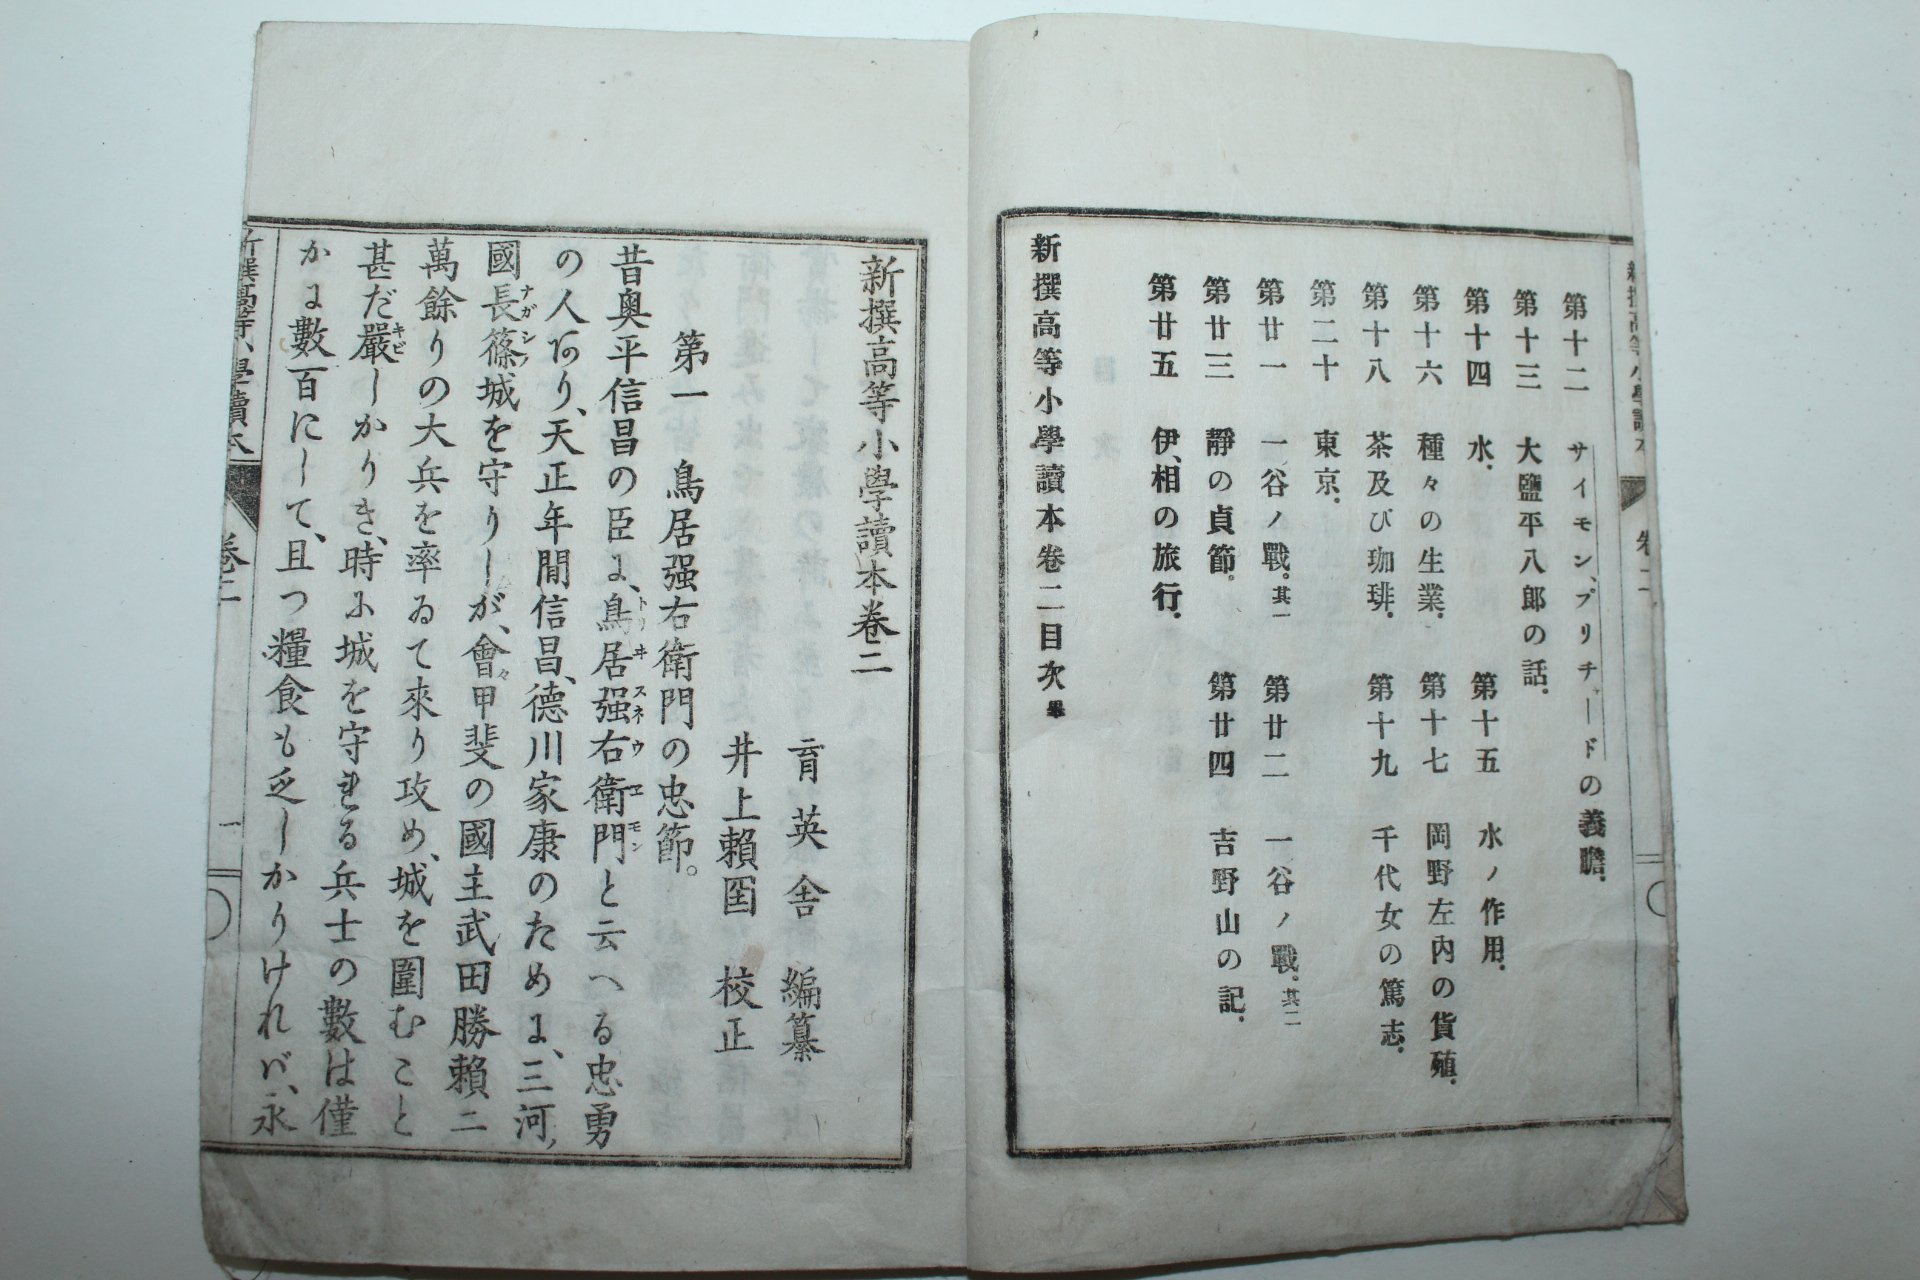 新撰高等小學讀本
卷二
第十二 サイモン、プリチャードの義膽.
第十三 大鹽平八郎の話.
第十四 水. 第十五 水ノ作用.
第十六 種々の生業. 第十七 岡野左内の貨殖.
第十八 茶及び珈琲. 第十九 千代女の篤志.
第二十 東京.
第廿一 一ノ谷ノ戰.其一 第廿二 一ノ谷ノ戰.其二
第廿三 靜の貞節. 第廿四 吉野山の記.
第廿五 伊、相の旅行.
新撰高等小學讀本卷二目次畢
新撰高等小學讀本卷二
育英舍 編纂
井上賴囶 校正
第一 鳥居强右衛門の忠節。
昔奥平信昌の臣に、鳥居强右衛門と云へる忠勇
トリヰスネウエモン
の人あり、天正年間信昌、德川家康のために、三河ノ
國長篠城を守りしが、會々甲斐の國主武田勝賴二
ナガシノ
萬餘りの大兵を率ゐて來り攻め、城を圍むこと
甚だ嚴しかりき、時に城を守れる兵士の數は僅
キビ
かに數百にして、且つ糧食も乏しかりければ、永
新撰高等小學讀本
卷二
一